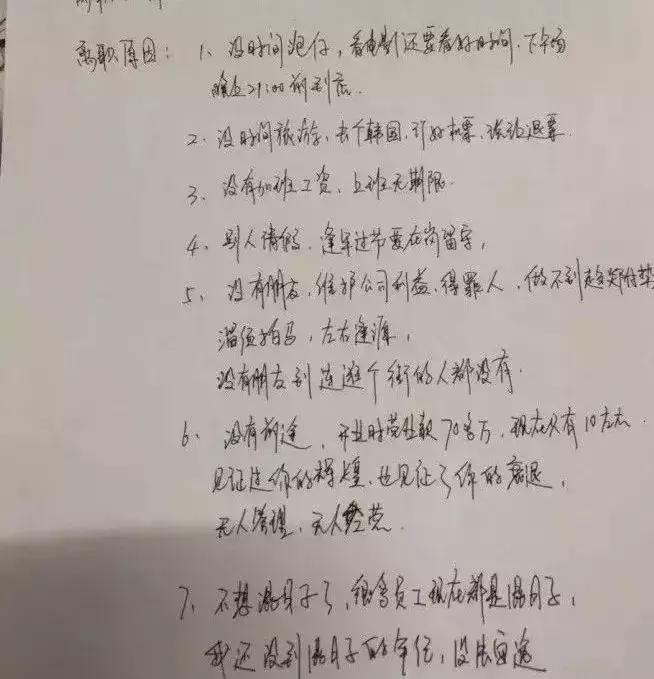 离职原因：1、没时间泡仔，看电影还要看好时间，下午场
难且21:00前到店.
2、没时间旅游，去个韩国，订好机票，被迫退票.
3、没有加班工资，上班无期限.
4、别人请假，逢年过节要在岗留守，
5、没有朋友，维护公司利益，得罪人，做不到趋炎附势
溜须拍马，左右逢源，
没有朋友到连逛个街的人都没有.
6、没有前途，开业时营业款70多万，现在只有10左右
见证过你的辉煌，也见证了你的衰退，
无人管理，无人经营.
7、不想混日子了，很多员工现在都是混日子，
我还没到混日子的年纪，没法